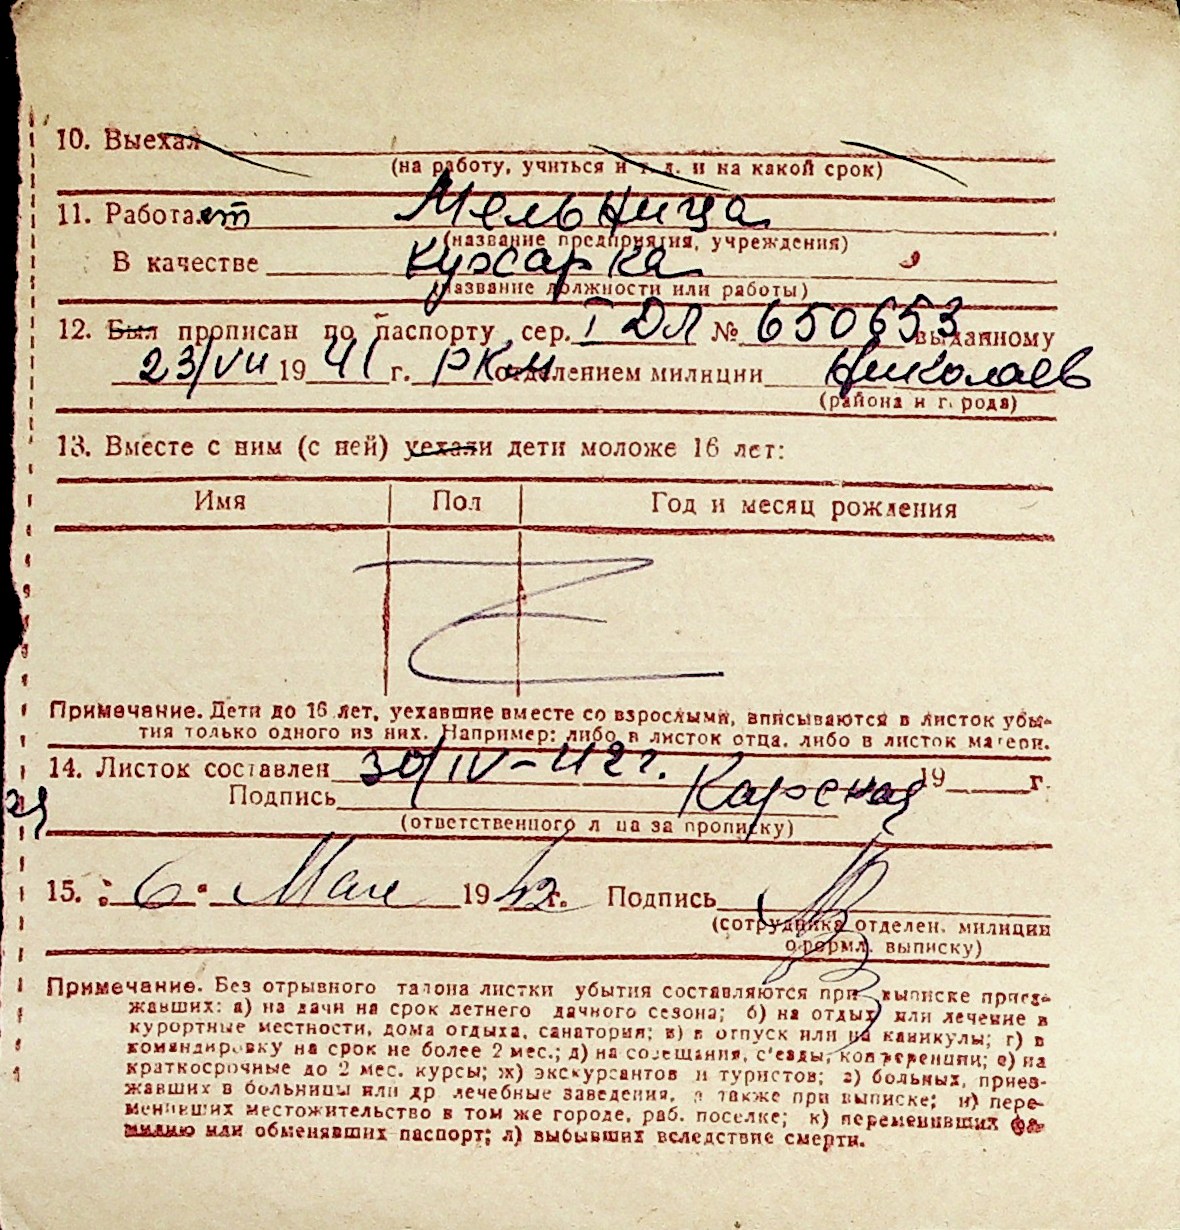 10. Выехал
(на работу, учиться и т. д. и на какой срок)
11. Работает Мельница
(название предприятия, учреждения)
В качестве кухарка
(название должности или работы)
12. Был прописан по паспорту сер. I ДЛ № 650653 выданному
23/VII 1941 г. РКМ отделением милиции Николаев
(района и города)
13. Вместе с ним (с ней) уехали дети моложе 16 лет:
Имя Пол Год и месяц рождения
Примечание. Дети до 16 лет, уехавшие вместе со взрослыми, вписываются в листок убы-
тия только одного из них. Например: либо в листок отца, либо в листок матери.
14. Листок составлен 30/IV-42 г. 19 г.
Подпись Карская
(ответственного лица за прописку)
15. "6" Мая 1942 г. Подпись
(сотрудника отделен. милиции
оформл. выписку)
Примечание. Без отрывного талона листки убытия составляются при выписке приез-
жавших: а) на дачи на срок летнего дачного сезона; б) на отдых или лечение в
курортные местности, дома отдыха, санатория; в) в отпуск или на каникулы; г) в
командировку на срок не более 2 мес.; д) на совещания, с'езды, конференции; е) на
краткосрочные до 2 мес. курсы; ж) экскурсантов и туристов; з) больных, приез-
жавших в больницы или др лечебные заведения, а также при выписке; и) пере-
менивших местожительство в том же городе, раб. поселке; к) переменивших фа-
милию или обменявших паспорт; л) выбывших вследствие смерти.